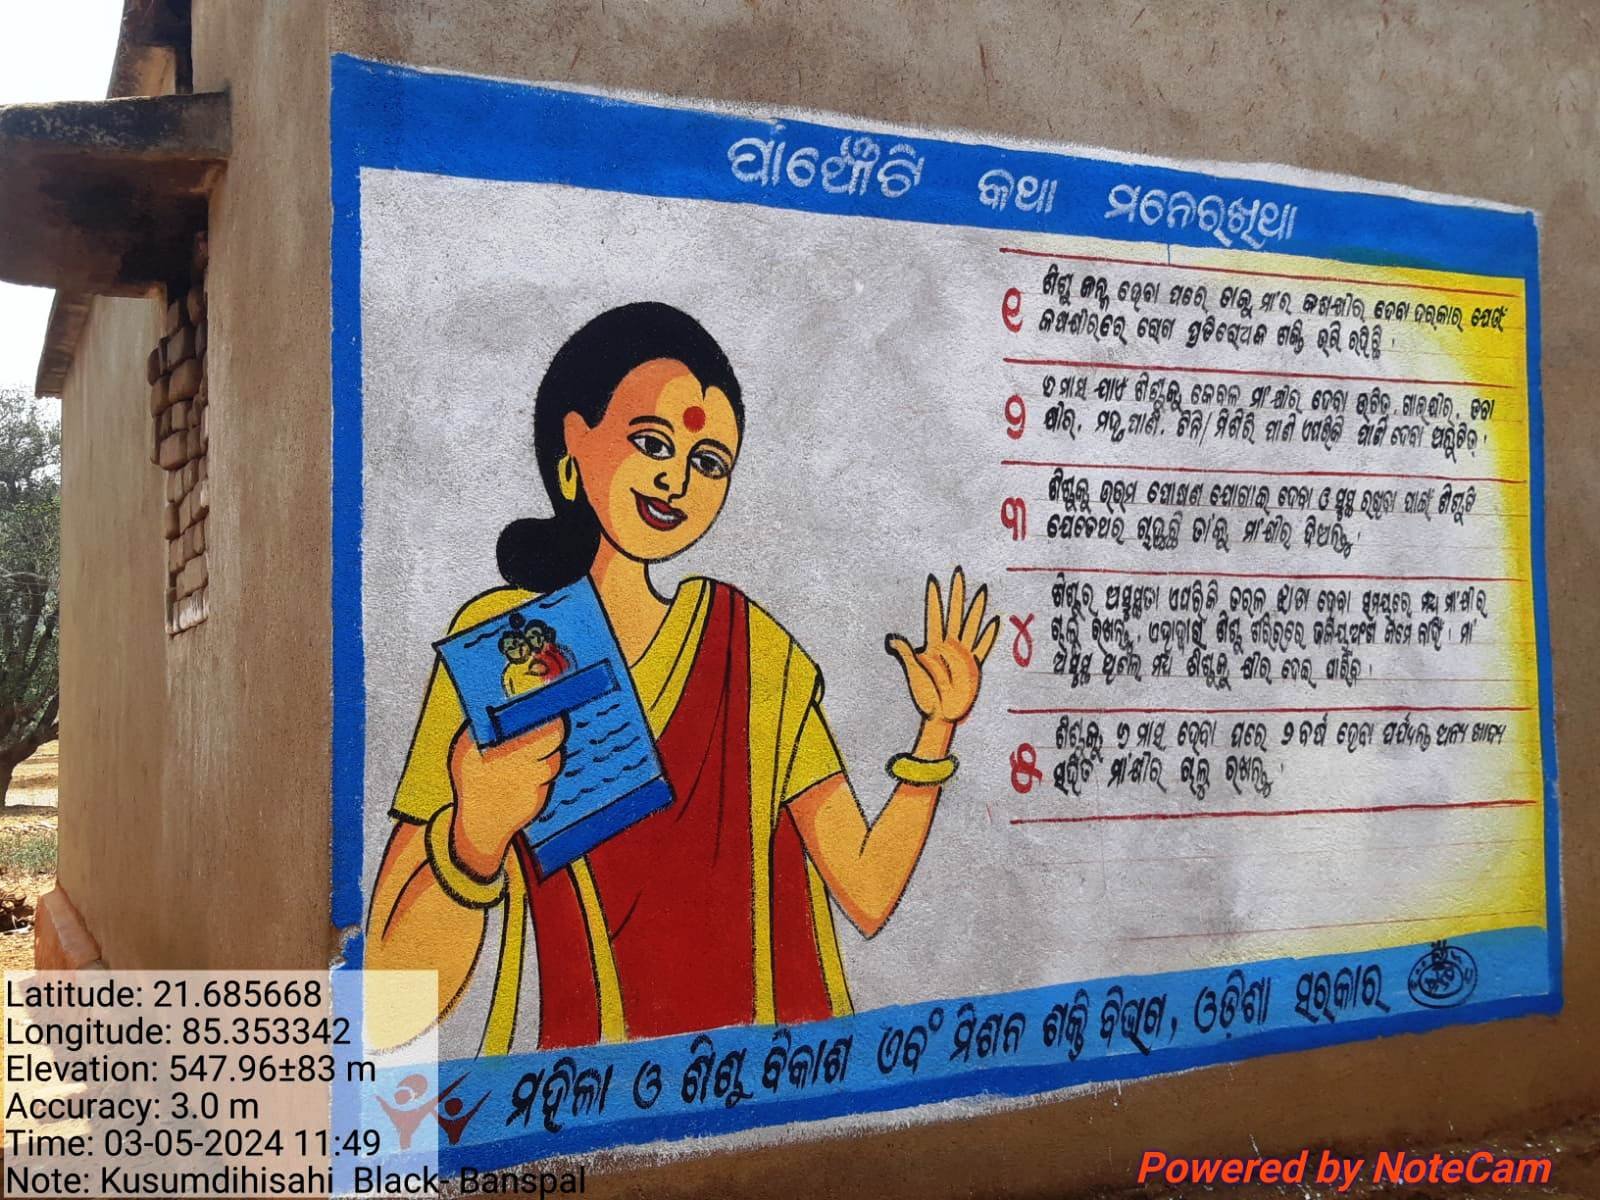 ପାଞ୍ଚୋଟି କଥା ମନେରଖିଥା
୧ ଶିଶୁ ଜନ୍ମ ହେବା ପରେ ତାକୁ ମା'ର କଷକ୍ଷୀର ଦେବା ଦରକାର ଯେଉଁ
କଷକ୍ଷୀରରେ ରୋଗ ପ୍ରତିରୋଧକ ଶକ୍ତି ଭରି ରହିଛି ।
୨ ୬ ମାସ ଯାଏ ଶିଶୁକୁ କେବଳ ମା' କ୍ଷୀର ଦେବା ଉଚିତ୍, ଗାଇକ୍ଷୀର, ଡବା
କ୍ଷୀର, ମହୁ ପାଣି, ଚିନି/ ମିଶିରି ପାଣି ଏପରିକି ପାଣି ଦେବା ଅନୁଚିତ୍ ।
୩ ଶିଶୁକୁ ଉତ୍ତମ ପୋଷଣ ଯୋଗାଇ ଦେବା ଓ ସୁସ୍ଥ ରଖିବା ପାଇଁ ଶିଶୁଟି
ଯେତେଥର ଚାହୁଁଛି ତା'କୁ ମା'କ୍ଷୀର ଦିଅନ୍ତୁ ।
୪ ଶିଶୁର ଅସୁସ୍ଥତା ଏପରିକି ତରଳ ଝାଡା ହେବା ସମୟରେ ମଧ୍ୟ ମା'କ୍ଷୀର
ଚାଲୁ ରଖନ୍ତୁ, ଏହାଦ୍ୱାରା ଶିଶୁ ଶରିରରେ ଜଳିୟଅଂଶ କମେ ନାହିଁ । ମା'
ଅସୁସ୍ଥ ଥିଲେ ମଧ୍ୟ ଶିଶୁକୁ କ୍ଷୀର ଦେଇ ପାରିବ ।
୫ ଶିଶୁକୁ ୬ ମାସ ହେବା ପରେ ୨ ବର୍ଷ ହେବା ପର୍ଯ୍ୟନ୍ତ ଅନ୍ୟ ଖାଦ୍ୟ
ସହିତ ମା'କ୍ଷୀର ଚାଲୁ ରଖନ୍ତୁ ।
ମହିଳା ଓ ଶିଶୁ ବିକାଶ ଏବଂ ମିଶନ ଶକ୍ତି ବିଭାଗ, ଓଡ଼ିଶା ସରକାର
Latitude: 21.685668
Longitude: 85.353342
Elevation: 547.96±83 m
Accuracy: 3.0 m
Time: 03-05-2024 11:49
Note: Kusumdihisahi Black- Banspal
Powered by NoteCam